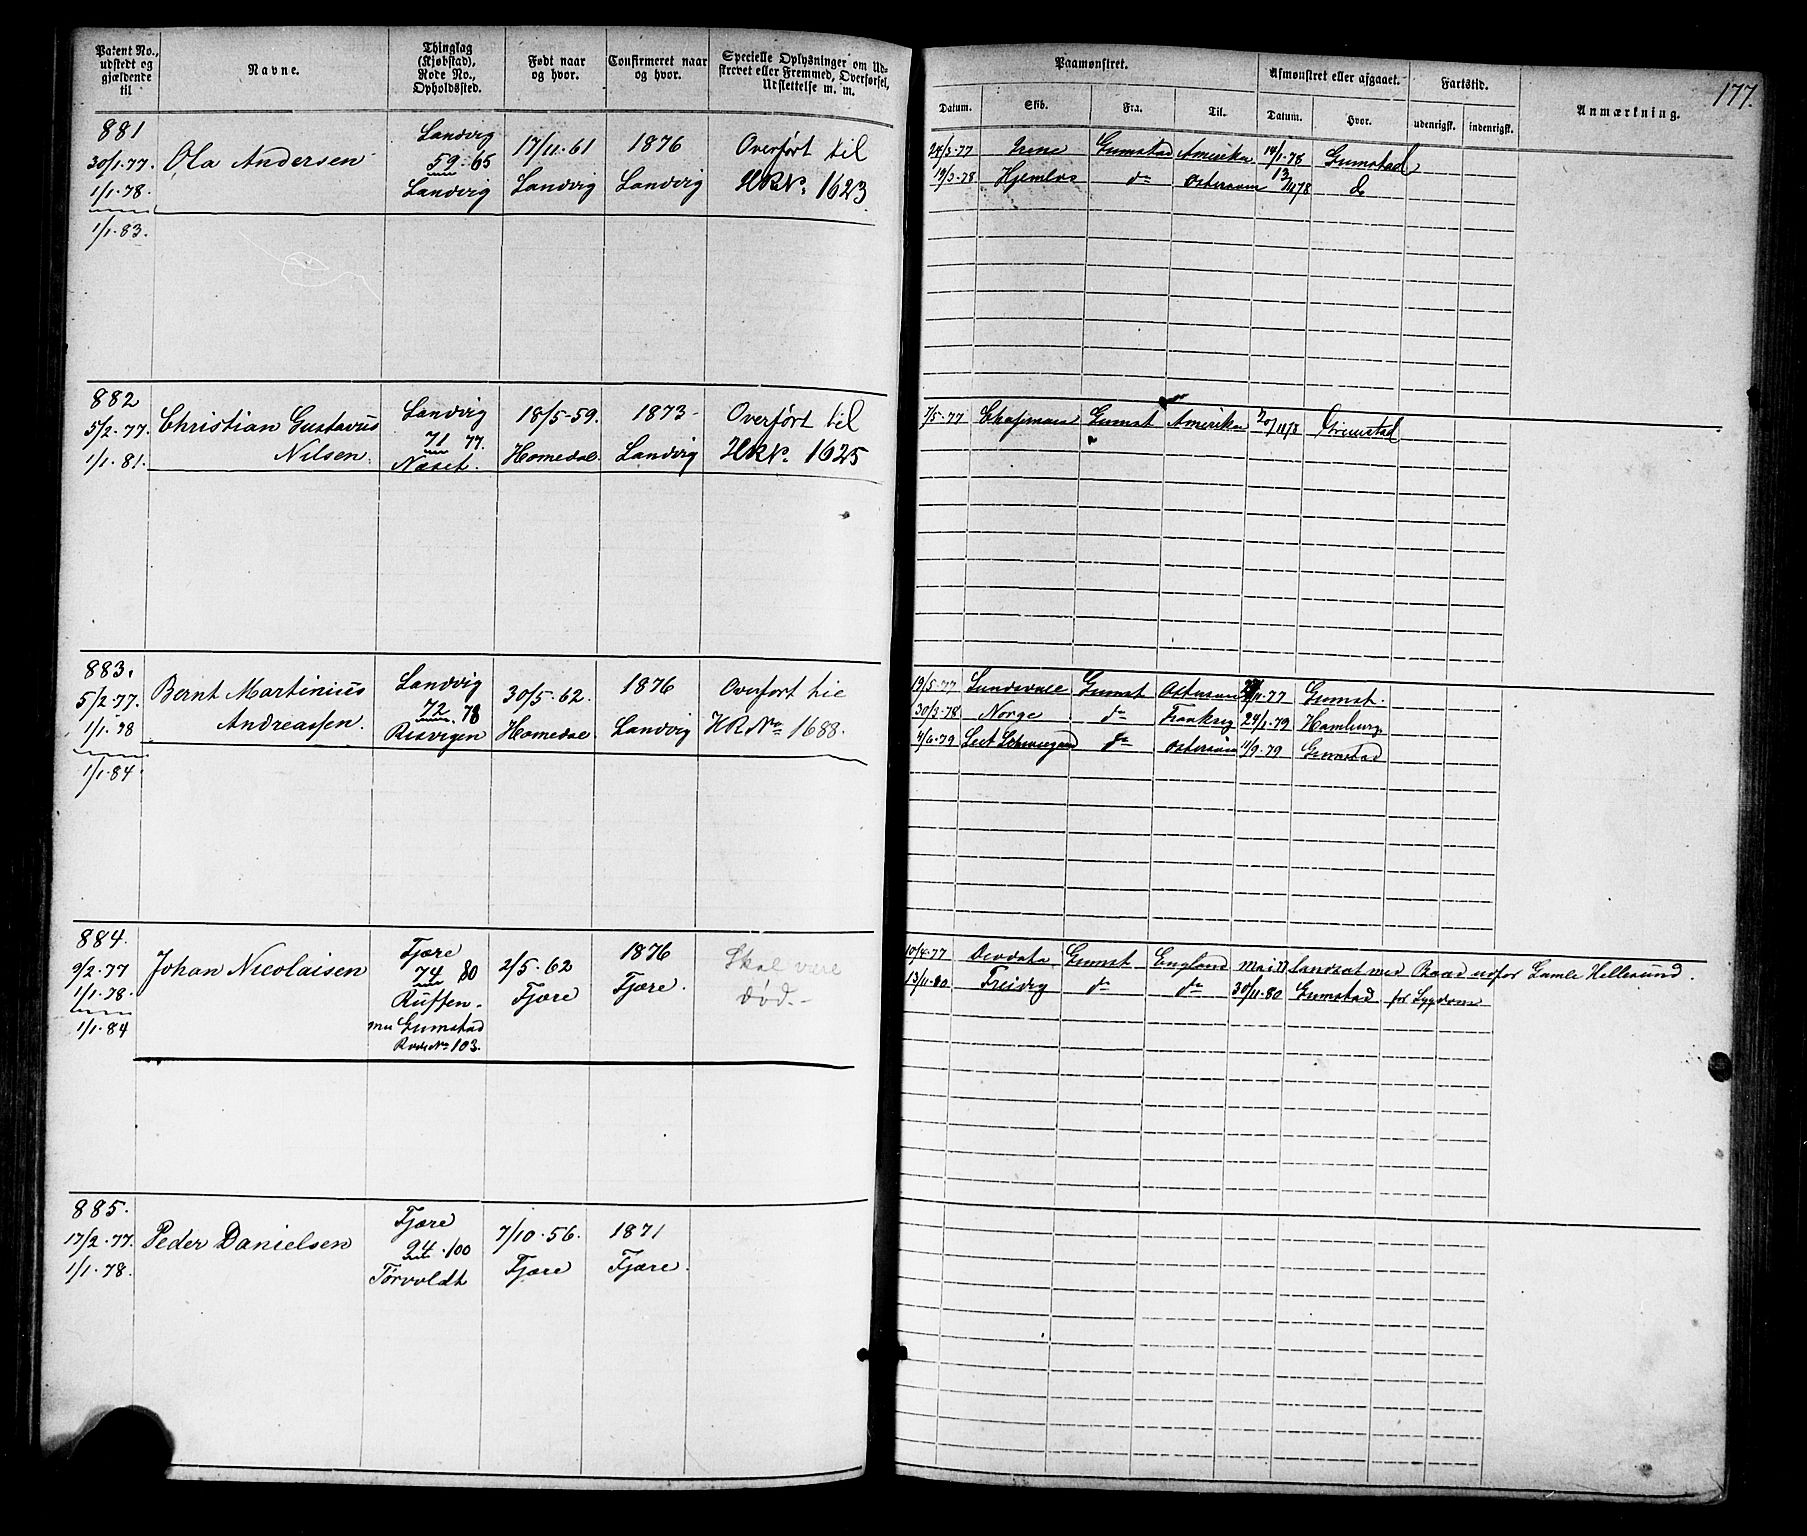 Patent No., udstedt og gjældende til
Navne.
Thinglag (Kjøbstad), Rode No., Opholdssted.
Født naar og hvor.
Confirmeret naar og hvor.
Specielle Oplysninger om Udskrevet eller Fremmed, Overførsel, Udslettelse m. m.
Paamønstret.
Datum.
Skib.
Fra.
Til.
Afmønstret eller afgaaet.
Datum.
Hvor.
Fartstid.
udenrigsk.
indenrigsk.
Anmærkning.
177.
881
30/1.77.
1/1.78.
1/1.83.
Ola Andersen
Landvig
59. 65
Landvig
17/11.61
Landvig
1876
Landvig
Overført til
HRNo. 1623
24/3.77 Irene Grimstad Amerika 14/1.78 Grimstad
19/3.78 Hjemlos do Østersøen 13/11 78 do
882
5/2.77.
1/1.81.
Christian Gustavus
Nilsen.
Landvig
71 77.
Næset.
18/5-59.
Homedal
1873
Landvig
Overført til
HRNo. 1625
7/5.77 Chapman Grimst Amerika 20/11 78 Grimstad
883.
5/2.77.
1/1.78
1/1.84.
Bernt Martinius
Andreassen.
Landvig
72. 78
Resvigen
30/5.62.
Homedal
1876
Landvig
Overført til
HRNo 1688.
19/5.77 Sundsvale Grimst Østersøen /11.77 Grimst.
30/3.78 Norge do Frankrig 24/1.79 Hamburg.
4/6.79 do Østersøen 11/9.79 Grimstad
884.
9/2.77
1/1.78.
1/1.84
Johan Nicolaisen
Fjære
74 80
Ruffen.
nu Grimstad
Rode No 103.
2/5.62
Fjære
1876
Fjære.
Skal være
død.-
10/4.77 Deodata Grimst England Mai 77 Landsat med Baad udfor Gamle Hellesund.
13/11.80 Freidig do do 30/11.80 Grimstad for Sygdom
885.
17/2.77.
1/1.78.
Peder Danielsen
Fjære
94.100
Torvoldt
7/10.56.
Fjære
1871
Fjære.